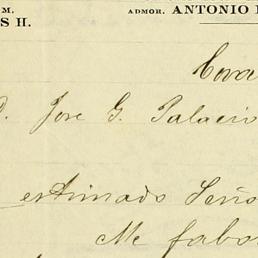 M. ADMOR. ANTONIO
S H.
D. Jose G. Palacio
estimado Seño
Me fabo